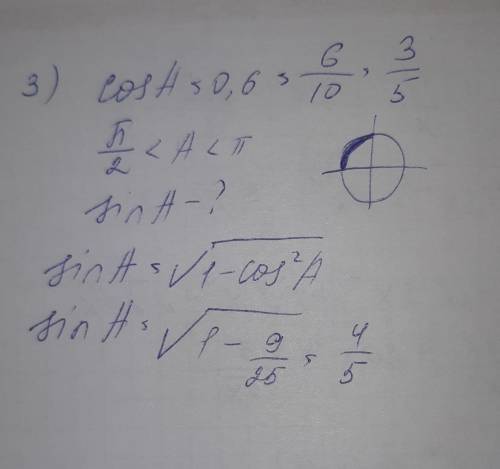 3) cosA = 0,6 = 6/10 = 3/5
π/2 < A < π
sinA - ?
sinA = √1-cos²A
sinA = √1 - 9/25 = 4/5